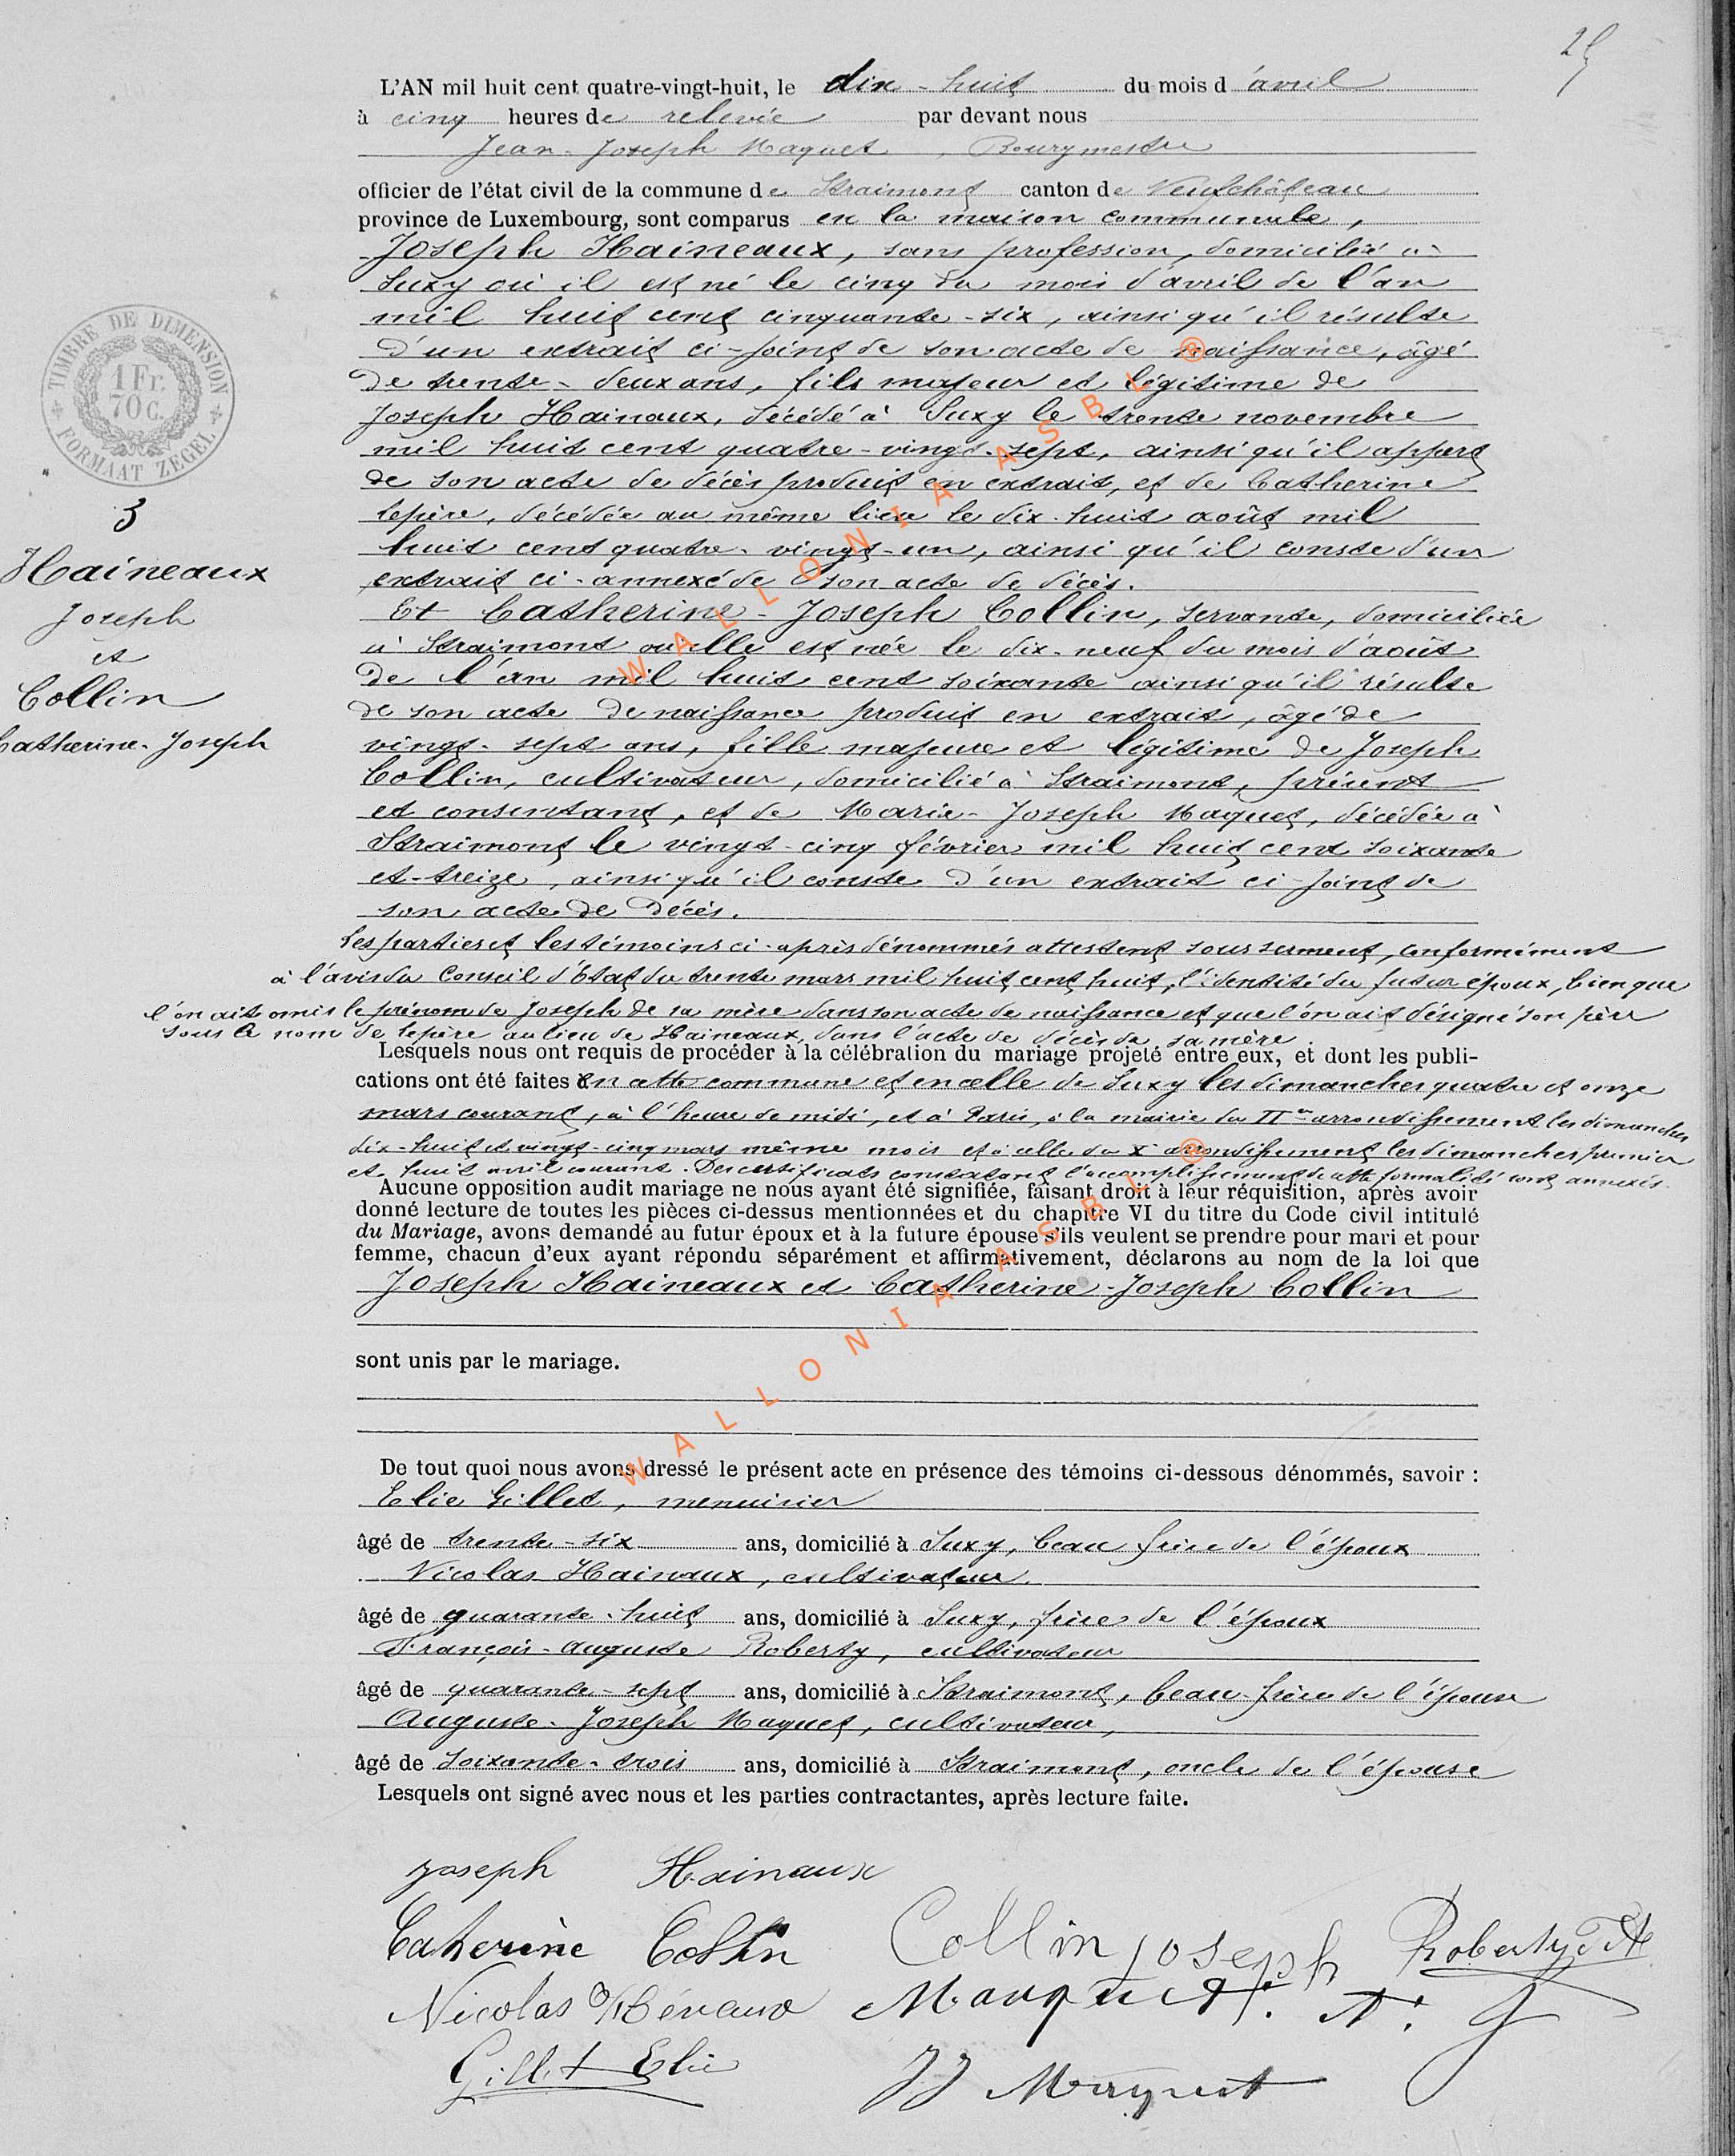 25
L'AN mil huit cent quatre-vingt-huit, le dix-huit du mois d'avril
à cinq heures de relevée par devant nous
Jean-Joseph Maquet, Bourgmestre
officier de l'état civil de la commune de Straimont canton de Neufchâteau
province de Luxembourg, sont comparus en la maison communale,
Joseph Haineaux, sans profession, domicilié à
Suxy où il est né le cinq du mois d'avril de l'an
mil huit cent cinquante-six, ainsi qu'il résulte
d'un extrait ci-joint de son acte de naissance, âgé
de trente-deux ans, fils majeur et légitime de
Joseph Hainaux, décédé à Suxy le trente novembre
mil huit cent quatre-vingt-sept, ainsi qu'il appert
de son acte de décès produit en extrait, et de Catherine
Lepère, décédée au même lieu le dix-huit août mil
huit cent quatre-vingt-un, ainsi qu'il conste d'un
extrait ci-annexé de son acte de décès.
Et Catherine-Joseph Collin, servante, domiciliée
à Straimont où elle est née le dix-neuf du mois d'août
de l'an mil huit cent soixante ainsi qu'il résulte
de son acte de naissance produit en extrait, âgé de
vingt-sept ans, fille majeure et légitime de Joseph
Collin, cultivateur, domicilié à Straimont, présent
et consentant, et de Marie-Joseph Maquet, décédée à
Straimont le vingt-cinq février mil huit cent soixante
et-treize, ainsi qu'il conste d'un extrait ci-joint de
son acte de décès.
Les parties et les témoins ci-après dénommés attestent sous serment, conformément
à l'avis du Conseil d'Etat du trente mars mil huit cent huit, l'identité du futur époux, bien que
l'on ait omis le prénom de Joseph de sa mère dans son acte de naissance et que l'on ait désigné son père
sous le nom de Lepère au lieu de Haineaux, dans l'acte de décès de sa mère.
Lesquels nous ont requis de procéder à la célébration du mariage projeté entre eux, et dont les publi-
cations ont été faites en cette commune et en celle de Suxy les dimanches quatre et onze
mars courant, à l'heure de midi, et à Paris, à la mairie du arrondissement les dimanches
dix-huit et vingt-cinq mars même mois et à celle du X arrondissement les dimanches premier
et huit avril courant. Des certificats constatant l'accomplissement de cette formalité sont annexés.
Aucune opposition audit mariage ne nous ayant été signifiée, faisant droit à leur réquisition, après avoir
donné lecture de toutes les pièces ci-dessus mentionnées et du chapitre VI du titre du Code civil intitulé
du Mariage, avons demandé au futur époux et à la future épouse s'ils veulent se prendre pour mari et pour
femme, chacun d'eux ayant répondu séparément et affirmativement, déclarons au nom de la loi que
Joseph Haineaux et Catherine-Joseph Collin
sont unis par le mariage.
De tout quoi nous avons dressé le présent acte en présence des témoins ci-dessous dénommés, savoir :
Elie Gillet, menuisier
âgé de trente-six ans, domicilié à Suxy, beau frère de l'époux
Nicolas Hainaux, cultivateur
âgé de quarante-huit ans, domicilié à Suxy, frère de l'époux
François-Auguste Roberty, cultivateur
âgé de quarante-sept ans, domicilié à Straimont, beau-frère de l'épouse
Auguste-Joseph Maquet, cultivateur,
âgé de soixante-trois ans, domicilié à Straimont, oncle de l'épouse
Lesquels ont signé avec nous et les parties contractantes, après lecture faite.
joseph Hainaux
Catherine Collin Collin joseph Roberty F A
Nicolas Hénaux Mauquet A. J
Gillet Elie JJ Maquet
TIMBRE DE DIMENSION
1 Fr.
70 C.
FORMAAT ZEGEL
3
Haineaux
Joseph
et
Collin
Catherine-Joseph
WALLONIA ASBL ®
WALLONIA ASBL ®